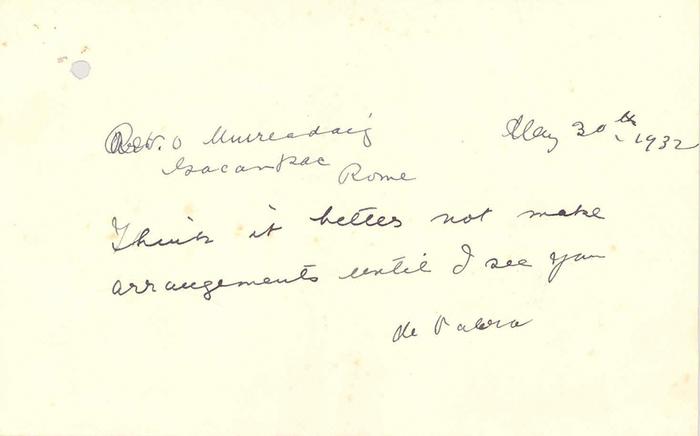 Rev. O Muireadaig
May 30th 1932
Isacanpac
Rome
Think it better not make
arrangements until I see you
de Valera